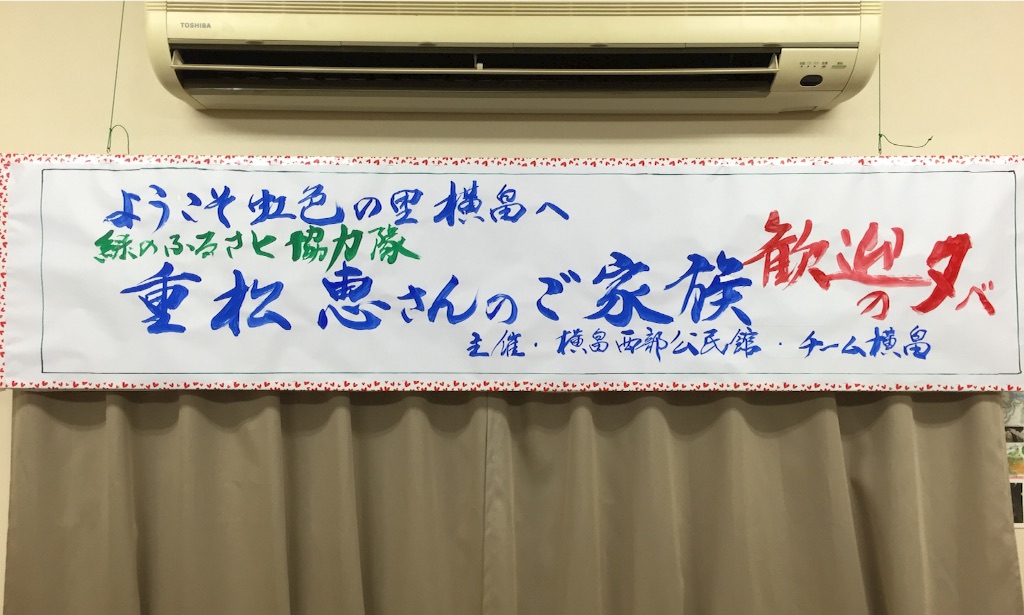 TOSHIBA
ようこそ虹色の里横畠へ
緑のふるさと協力隊
重松恵さんのご家族歓迎の夕べ
主催・横畠西部公民館・チーム横畠